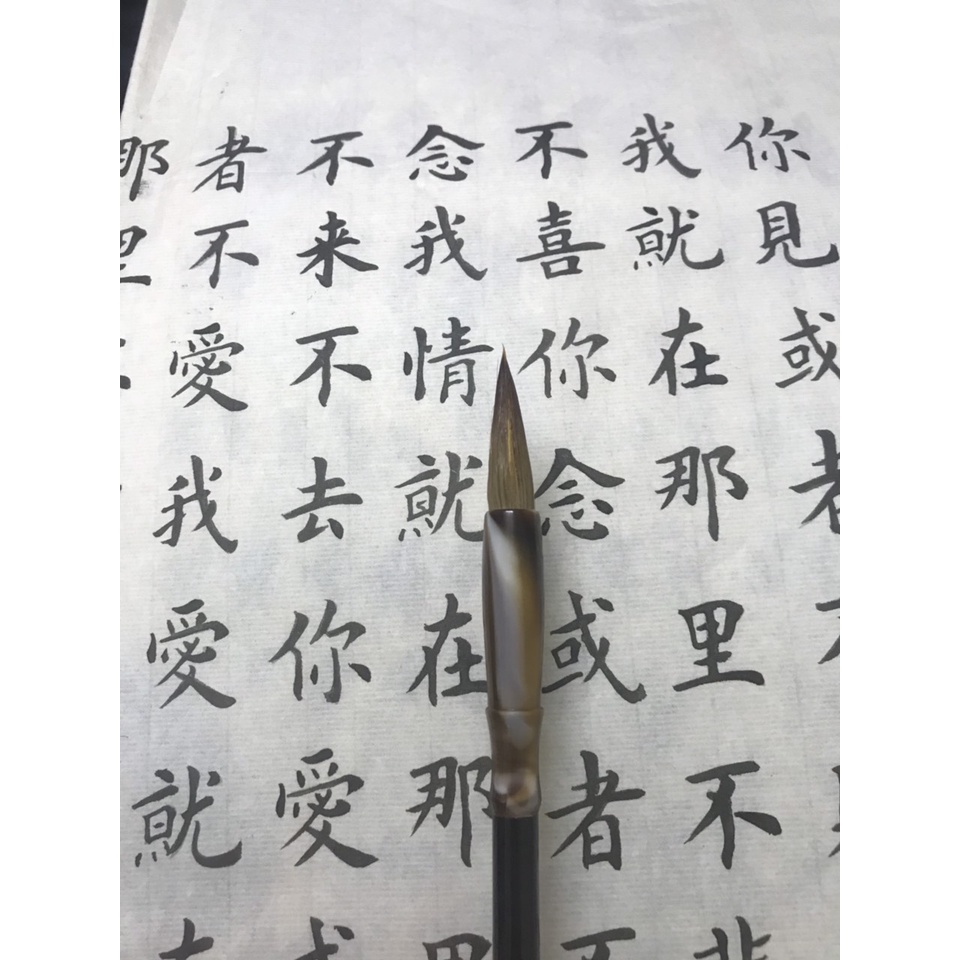 你見或者不
我就在那里不悲
不喜你念或者不
念我情就在那里
不来不去你愛或
者不愛我愛就在
那里